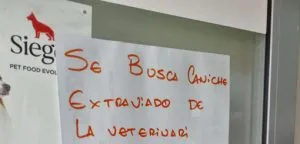 Sieg
PET FOOD EVOL
SE BUSCA CANICHE
EXTRAVIADO DE
LA VETERINARI